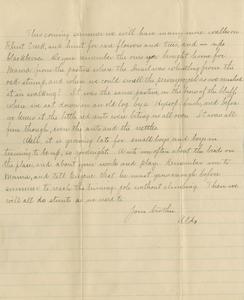 This coming summer we will have many more walks on
Flint Creek, and hunt for rare flowers and trees, and
blackberries. Do you remember the ones you brought home for
Mama, from the pasture where the Quail was whistling from the
oak stump, and when we could smell the pennyroyal as we crushed
it in walking? It was the same pasture, in the front of the bluff,
where we sat down on an old log by a and before
we knew it the little red ants were biting us all over. It was all
fun though, even the ants and the nettles.
Well, it is growing late for small boys and boys in
training to be up, so goodnight. Write me often about the birds on
the place, and about your work and play. Remember me to
Mama, and tell Eugene that he must grow enough before
summer to reach the turning pole without climbing. Then we
will all do stunts as we used to.
Your brother